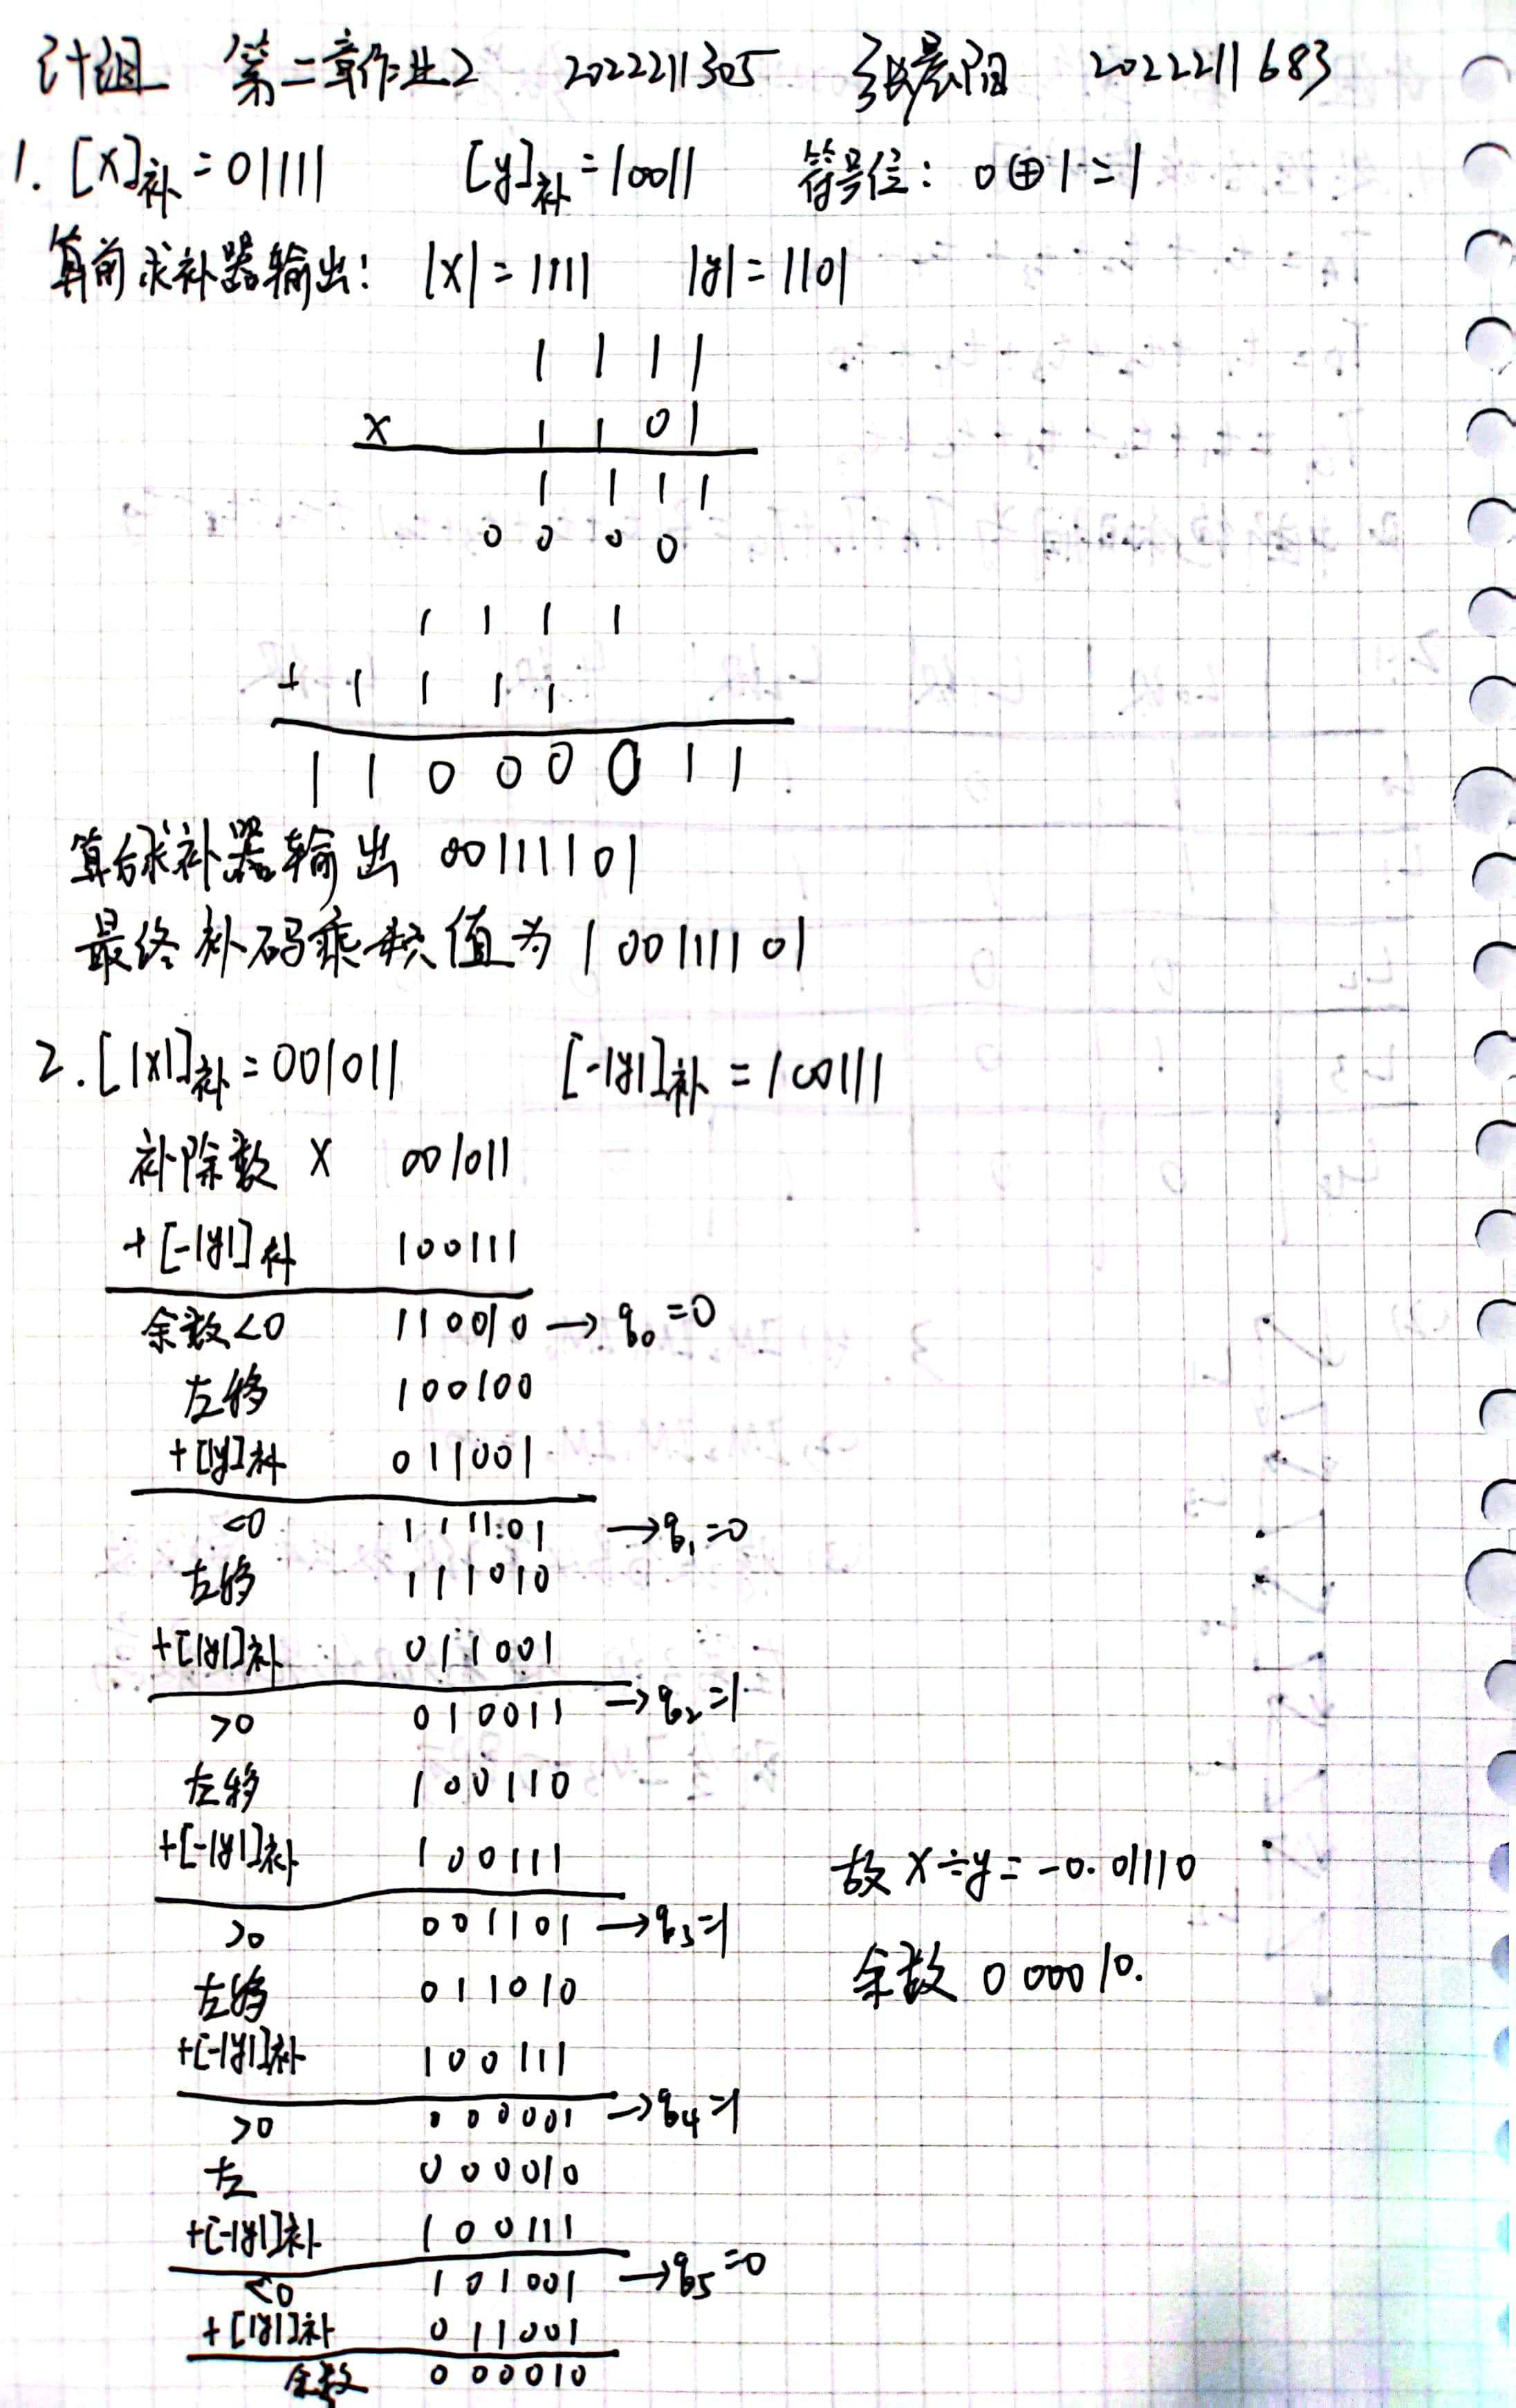 计组 第二章作业2 2022211305 张晨阳 2022211683
1. [x]补 = 01111 [y]补 = 10011 符号位: 0⊕1=1
算前求补器输出: |x| = 1111 |y| = 1101
1 1 1 1
× 1 1 0 1
1 1 1 1
0 0 0 0
1 1 1 1
+ 1 1 1 1
1 1 0 0 0 0 1 1
算后求补器输出 00111101
最终补码乘积值为 100111101
2. [|x|]补 = 001011 [-|y|]补 = 100111
补除数 x 001011
+[-|y|]补 100111
余数<0 110010 → q0=0
左移 100100
+[|y|]补 011001
<0 111101 → q1=0
左移 111010
+[|y|]补 011001
>0 010011 → q2=1
左移 100110
+[-|y|]补 100111
>0 001101 → q3=1
左移 011010
+[-|y|]补 100111
>0 000001 → q4=1
左 000010
+[-|y|]补 100111
<0 101001 → q5=0
+[|y|]补 011001
余数 000010
故 x÷y = -0.01110
余数 000010.